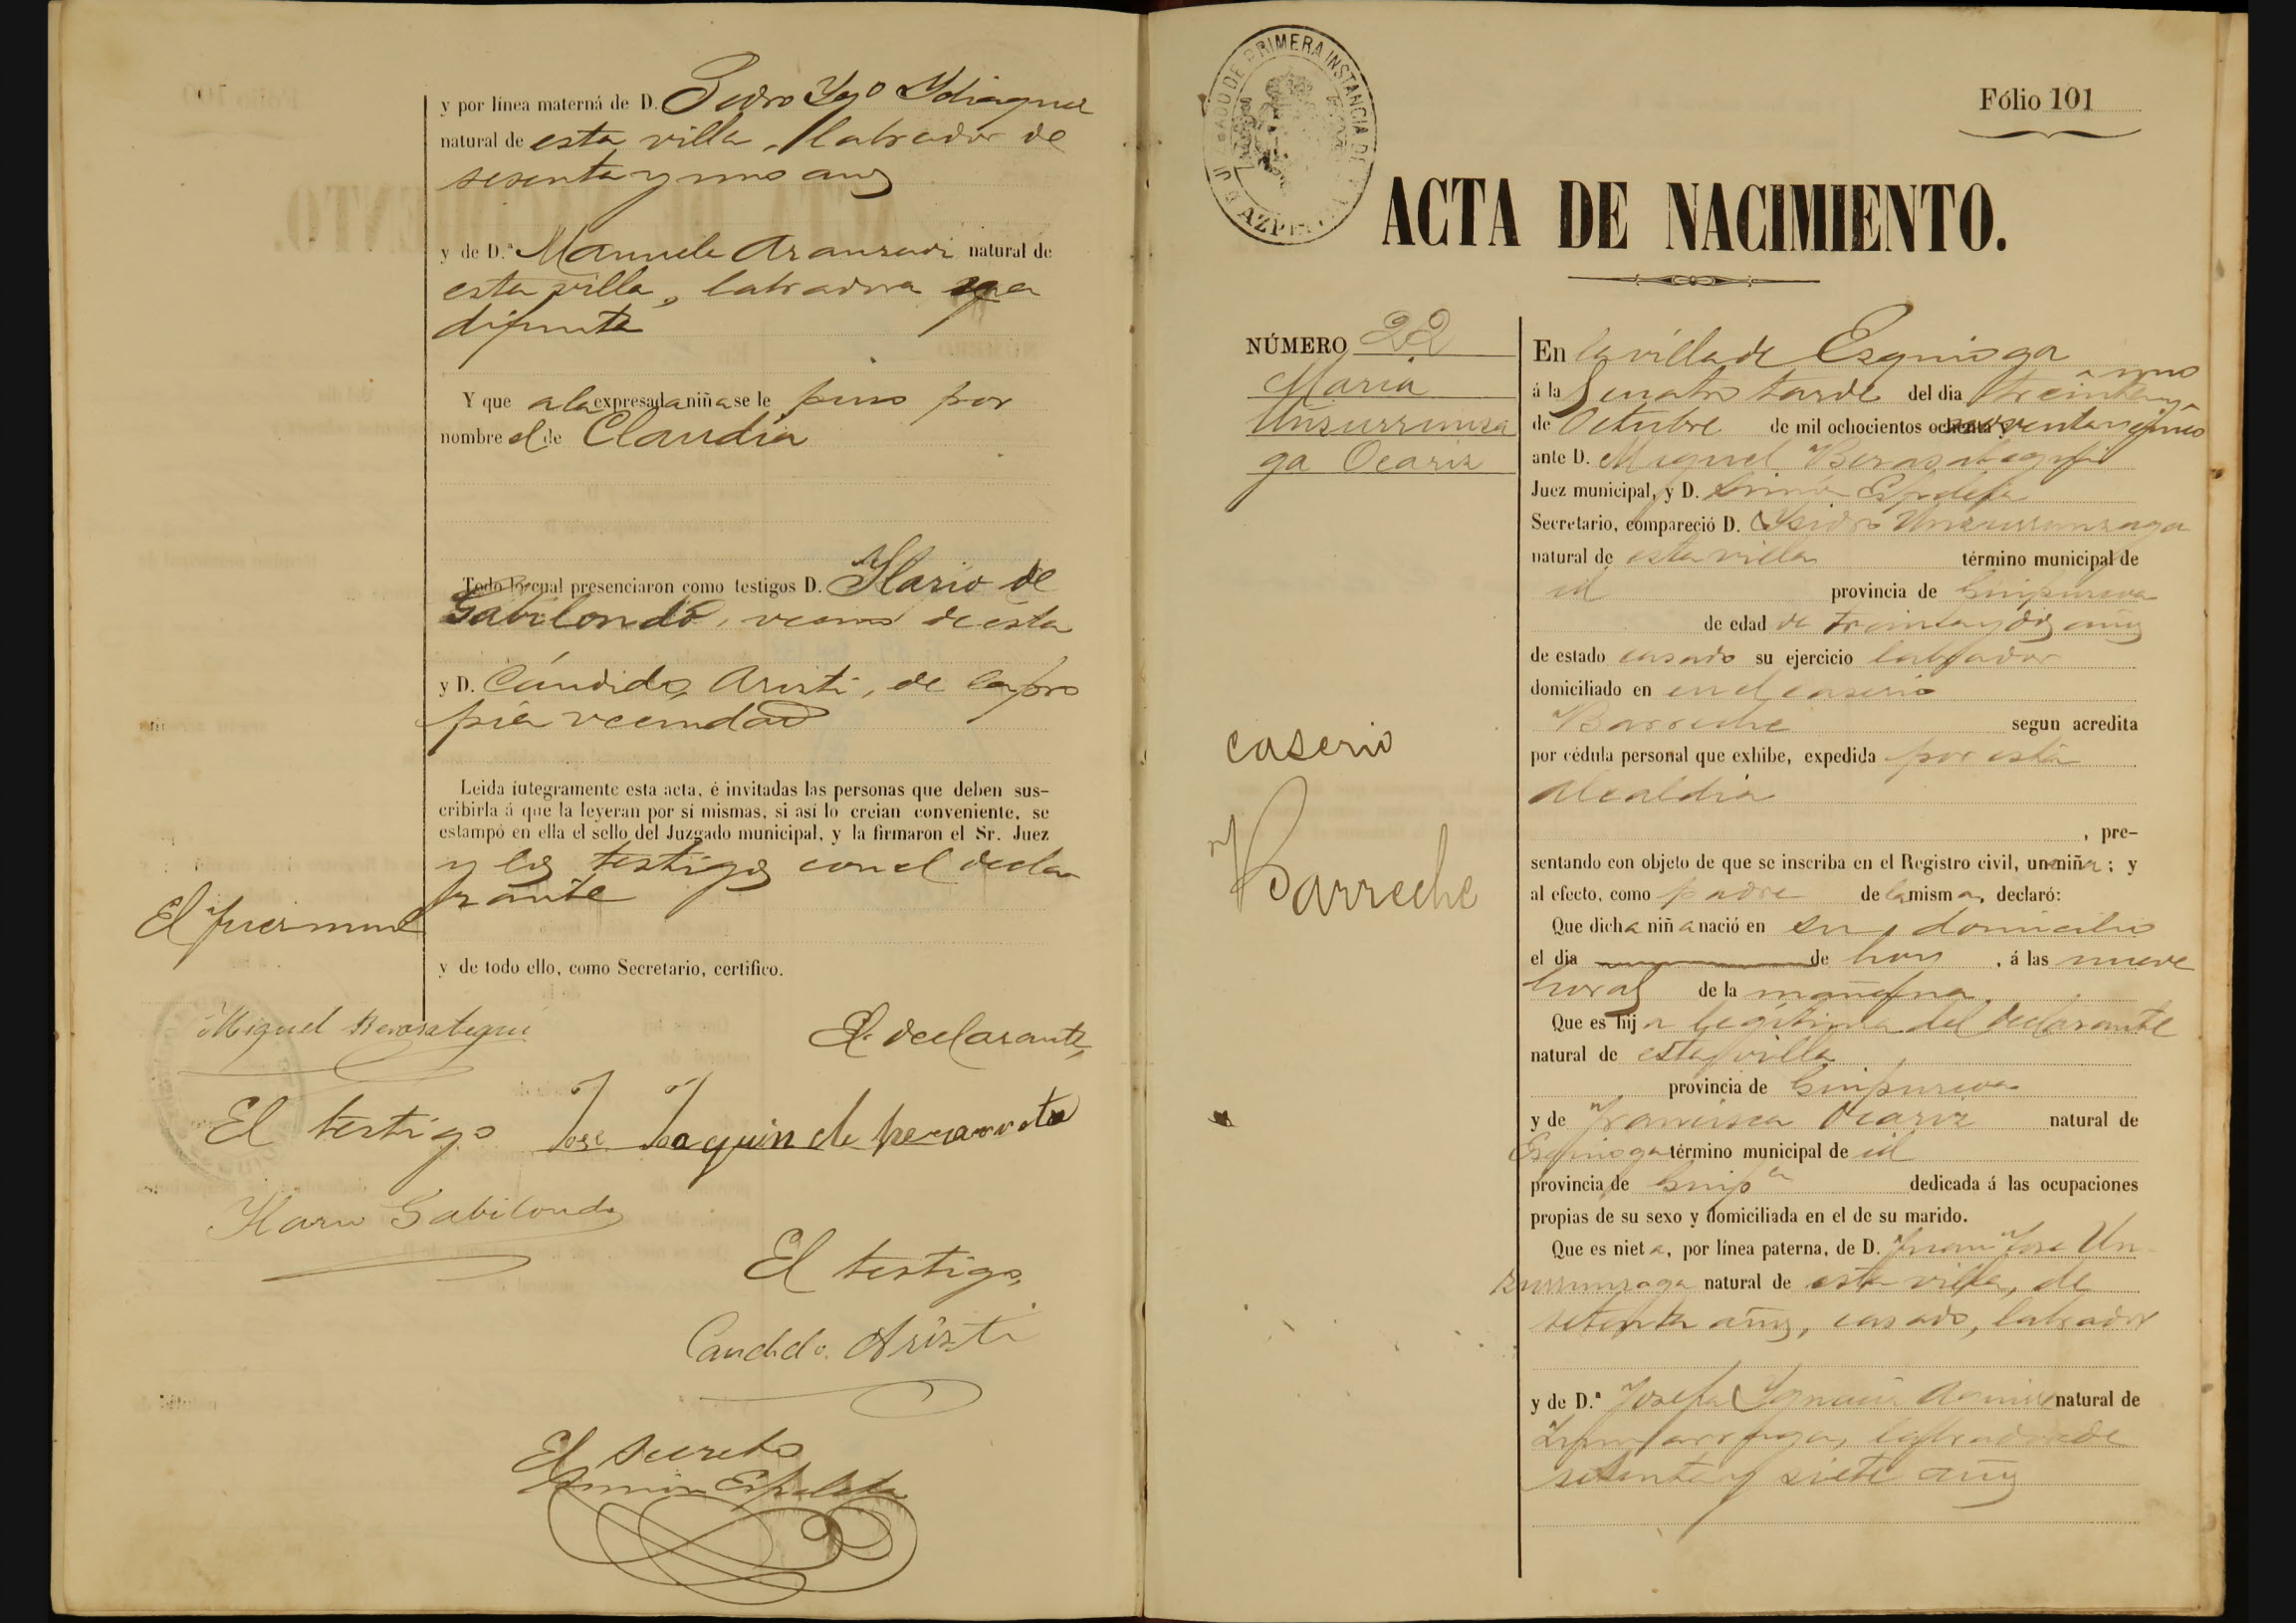 y por línea materná de D. Pedro Ygo Ydiaquez
natural de esta villa, labrador de
sesenta y uno años
y de D.ª Manuela Aranzadi natural de
esta villa, labradora ya
difunta
Y que a la expresada niña se le puso por
nombre el de Claudia
Todo lo cual presenciaron como testigos D. Ylario de
Gabilondo, vecino de esta
y D. Cándido Aristi, de la pro
pia vecindad
Leida íntegramente esta acta, é invitadas las personas que deben sus-
cribirla á que la leyeran por sí mismas, si así lo creian conveniente, se
estampó en ella el sello del Juzgado municipal, y la firmaron el Sr. Juez
y los testigos con el decla
rante
El Juez munl
y de todo ello, como Secretario, certifico.
Miguel Berasategui
El declarante,
El testigo José Joaquin de
Ylario Gabilondo
El testigo,
Candido Aristi
El Secreto
Simón Ezpeleta
JUZGADO DE PRIMERA INSTANCIA DE AZPEITIA
Fólio 101
ACTA DE NACIMIENTO.
NÚMERO 22
Maria
Unzurrunza
ga Ocariz
caserio
Barreche
En la villa de Ezquioga
á la s cuatro tarde del dia treinta y uno
de Octubre de mil ochocientos ochenta y noventa y cinco
ante D. Miguel Berasategui
Juez municipal, y D. Simón Ezpeleta
Secretario, compareció D. Ysidro Unzurrunzaga
natural de esta villa término municipal de
id provincia de Guipuzcoa
de edad de treinta y dos años
de estado casado su ejercicio labrador
domiciliado en en el caserio
Barreche segun acredita
por cédula personal que exhibe, expedida por esta
Alcaldia
, pre-
sentando con objeto de que se inscriba en el Registro civil, una niña; y
al efecto, como padre de la misma, declaró:
Que dicha niña nació en su domicilio
el dia de hoy, á las nueve
horas de la mañana.
Que es hija legítima del declarante
natural de esta villa,
provincia de Guipuzcoa
y de Francisca Ocariz natural de
Ezquioga término municipal de id
provincia de Guipca dedicada á las ocupaciones
propias de su sexo y domiciliada en el de su marido.
Que es nieta, por línea paterna, de D. Juan José Un
zurrunzaga natural de esta villa, de
setenta años, casado, labrador
y de D.ª Josefa Ygnacia natural de
Zumarraga, labradora de
sesenta y siete años